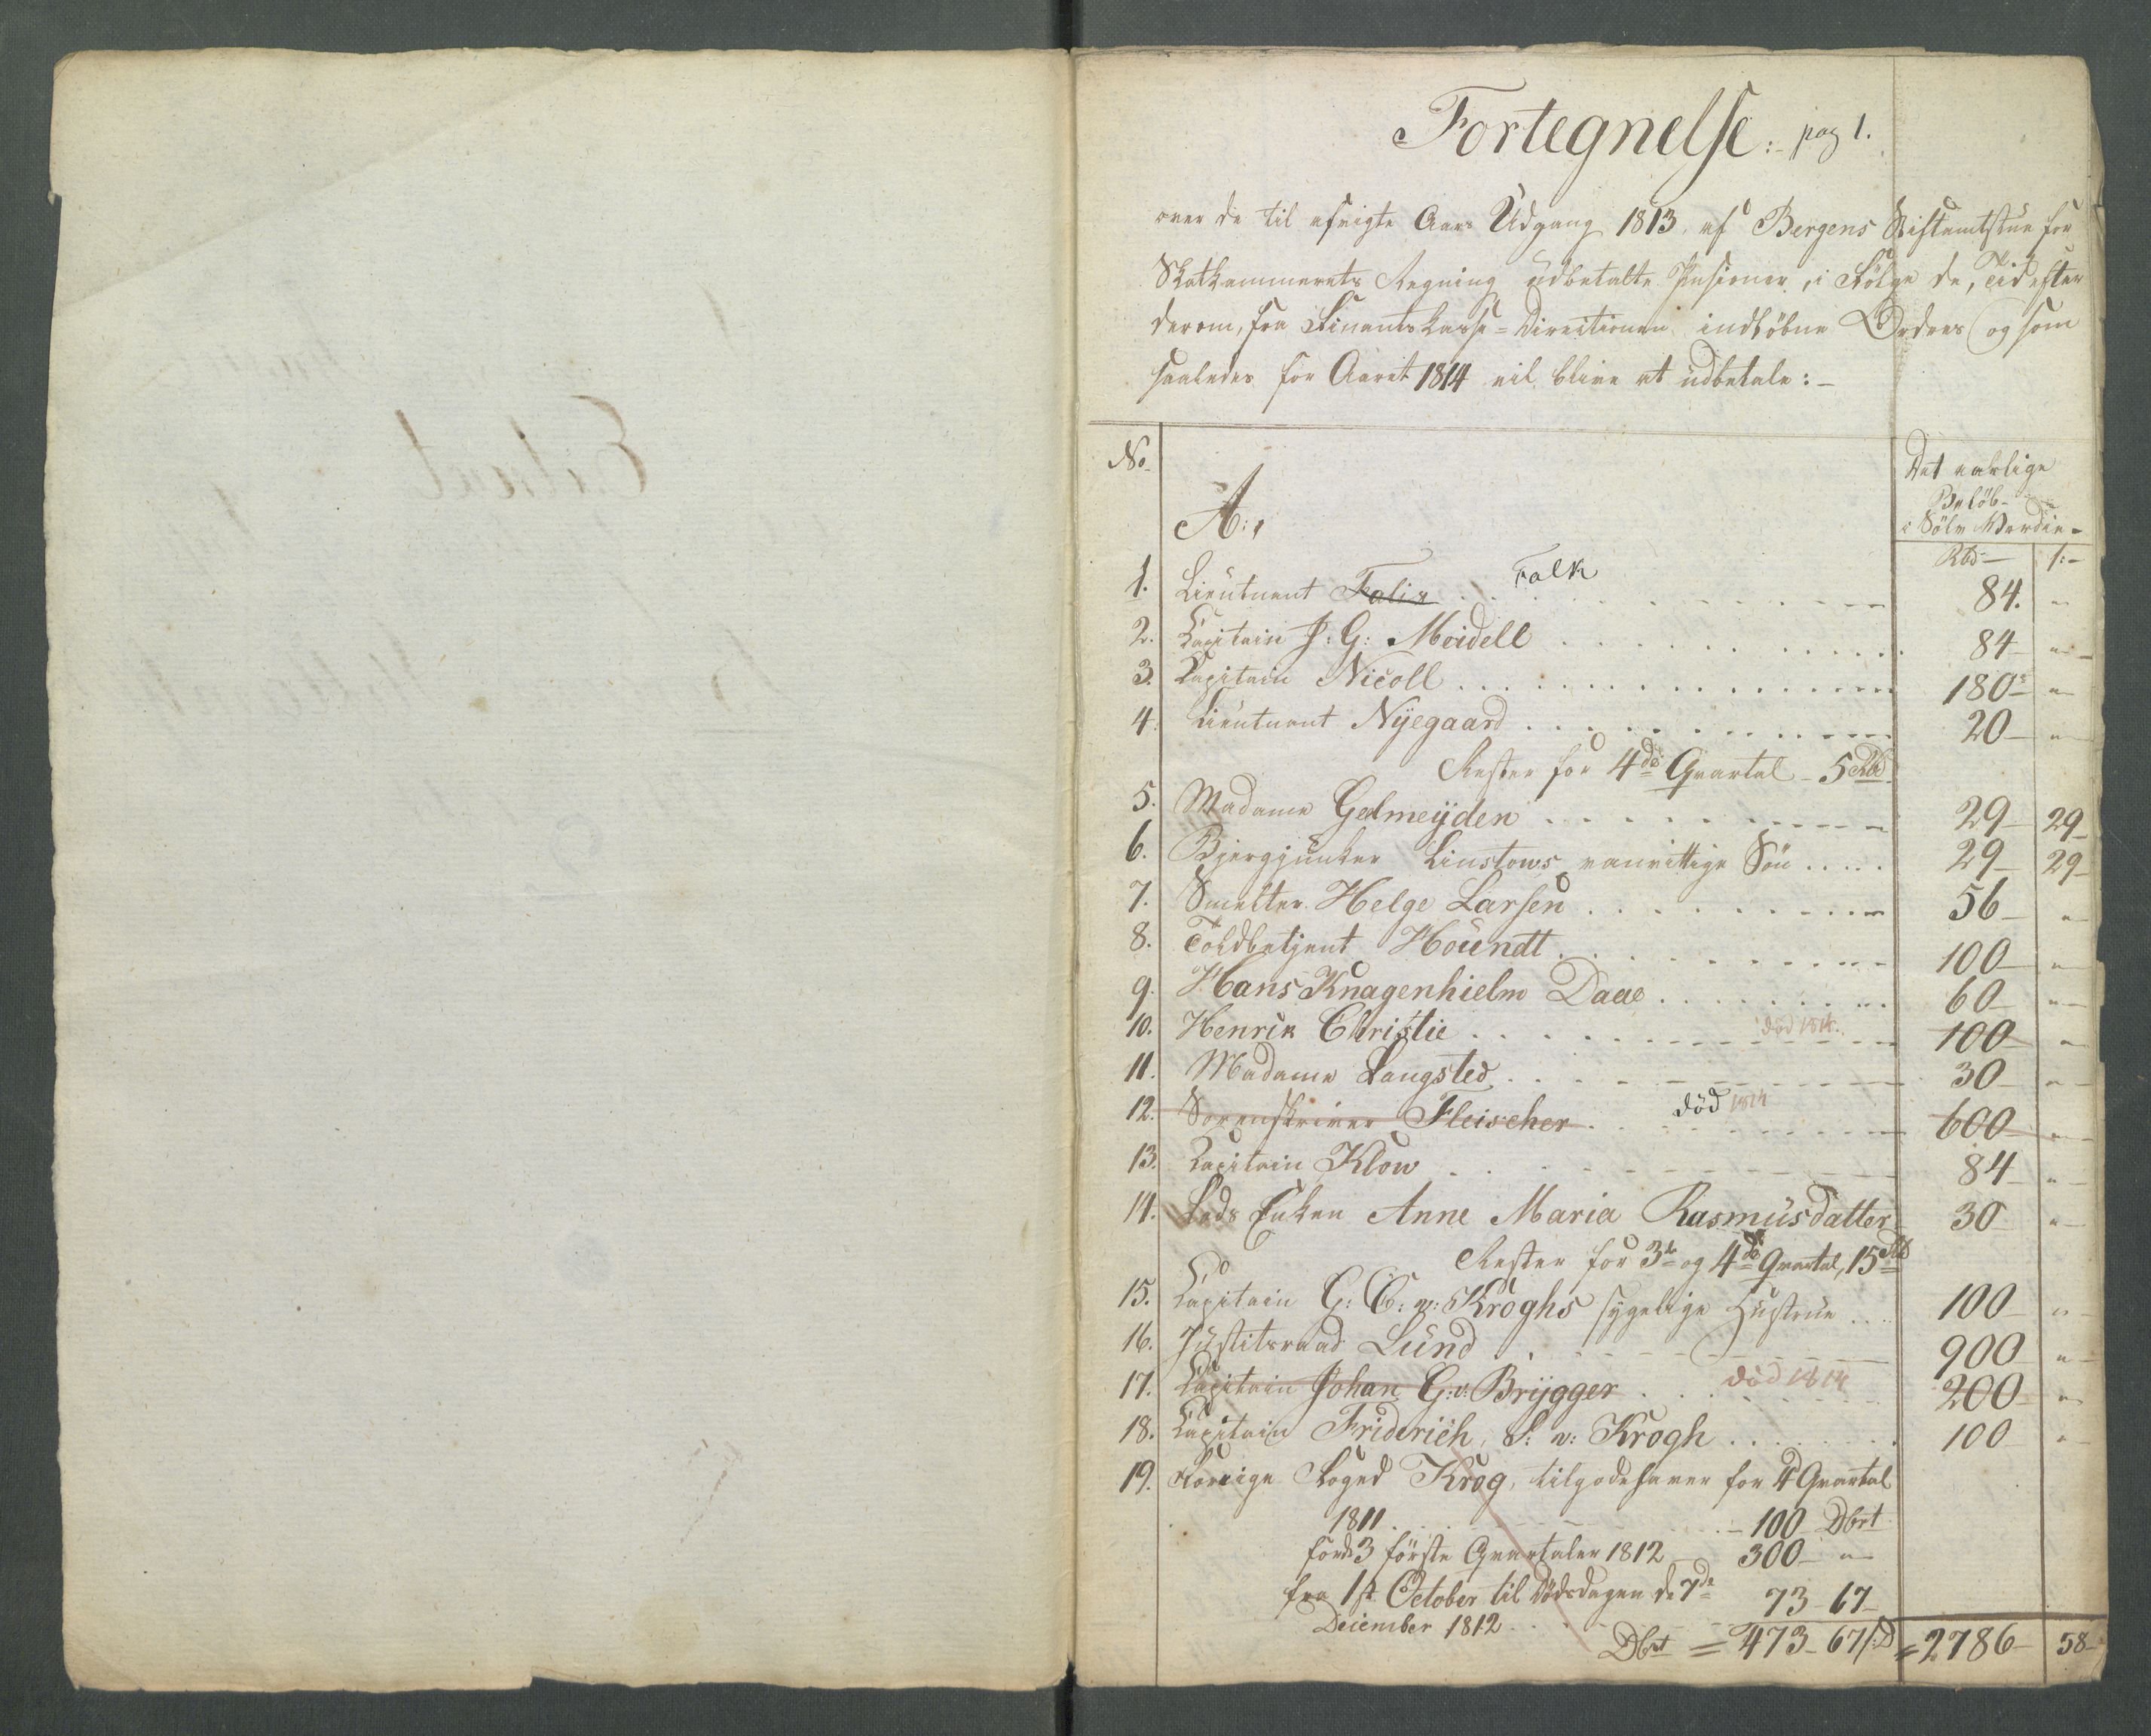 Fortegnelse:- pag 1.
over de til afvigte Aars Udgang 1813. af Bergens Stiftamtstue for
Skatkammerets Regning udbetalte Pensioner, i Følge de, Tid efter
derom, fra Finantskasse-Directionen indløbne Ordres (og som
saaledes for Aaret 1814 vil blive at udbetale:-
No.
Det aarlige
Beløb-
i Sølv Værdie-
A:,
Rbd- s:-
1. Lieutnant Falix Falk 84. "
2. Kapitain J: G: Meidell 84- "-
3. Kapitain Nicoll 180- "-
4. Lieutnant Nÿegaard 20- "-
Rester for 4de Qvartal - 5 Rbd
5. Madame Gelmeÿden 29- 29-
6. Bjergjunker Linstows vanvittige Søn 29- 29-
7. Smelter Helge Larsen 56- "-
8. Toldbetjent Houndt 100- "-
9. Hans Knagenhielm Daae 60- "-
10. Henrik Christie død 1814. 100 "-
11. Madame Langsted 30- "-
12. Sorenskriver Fleischer død 1814 600 "-
13. Kapitain Klow 84- "-
14. Lods Enken Anne Maria Rasmusdatter 30- "-
Rester for 3de og 4de Qvartal, 15 Rbd
15. Kapitain G: C: v: Kroghs sygelige Hustrue 100- "
16. Justitsraad Lund 900- "-
17. Kapitain Johan G: v: Brÿgger død 1814 200- "
18. Kapitain Friderich, S: v: Krogh 100- "-
19. Forrige Foged Krog, tilgodehaver for 4d Qvartal
1811 - 100 Dbrt
for de 3 første Qvartaler 1812 300- "-
fra 1st October til Dødsdagen de 7de 73- 67-
December 1812
Dbrt = 473- 67 s: D =2786- 58-